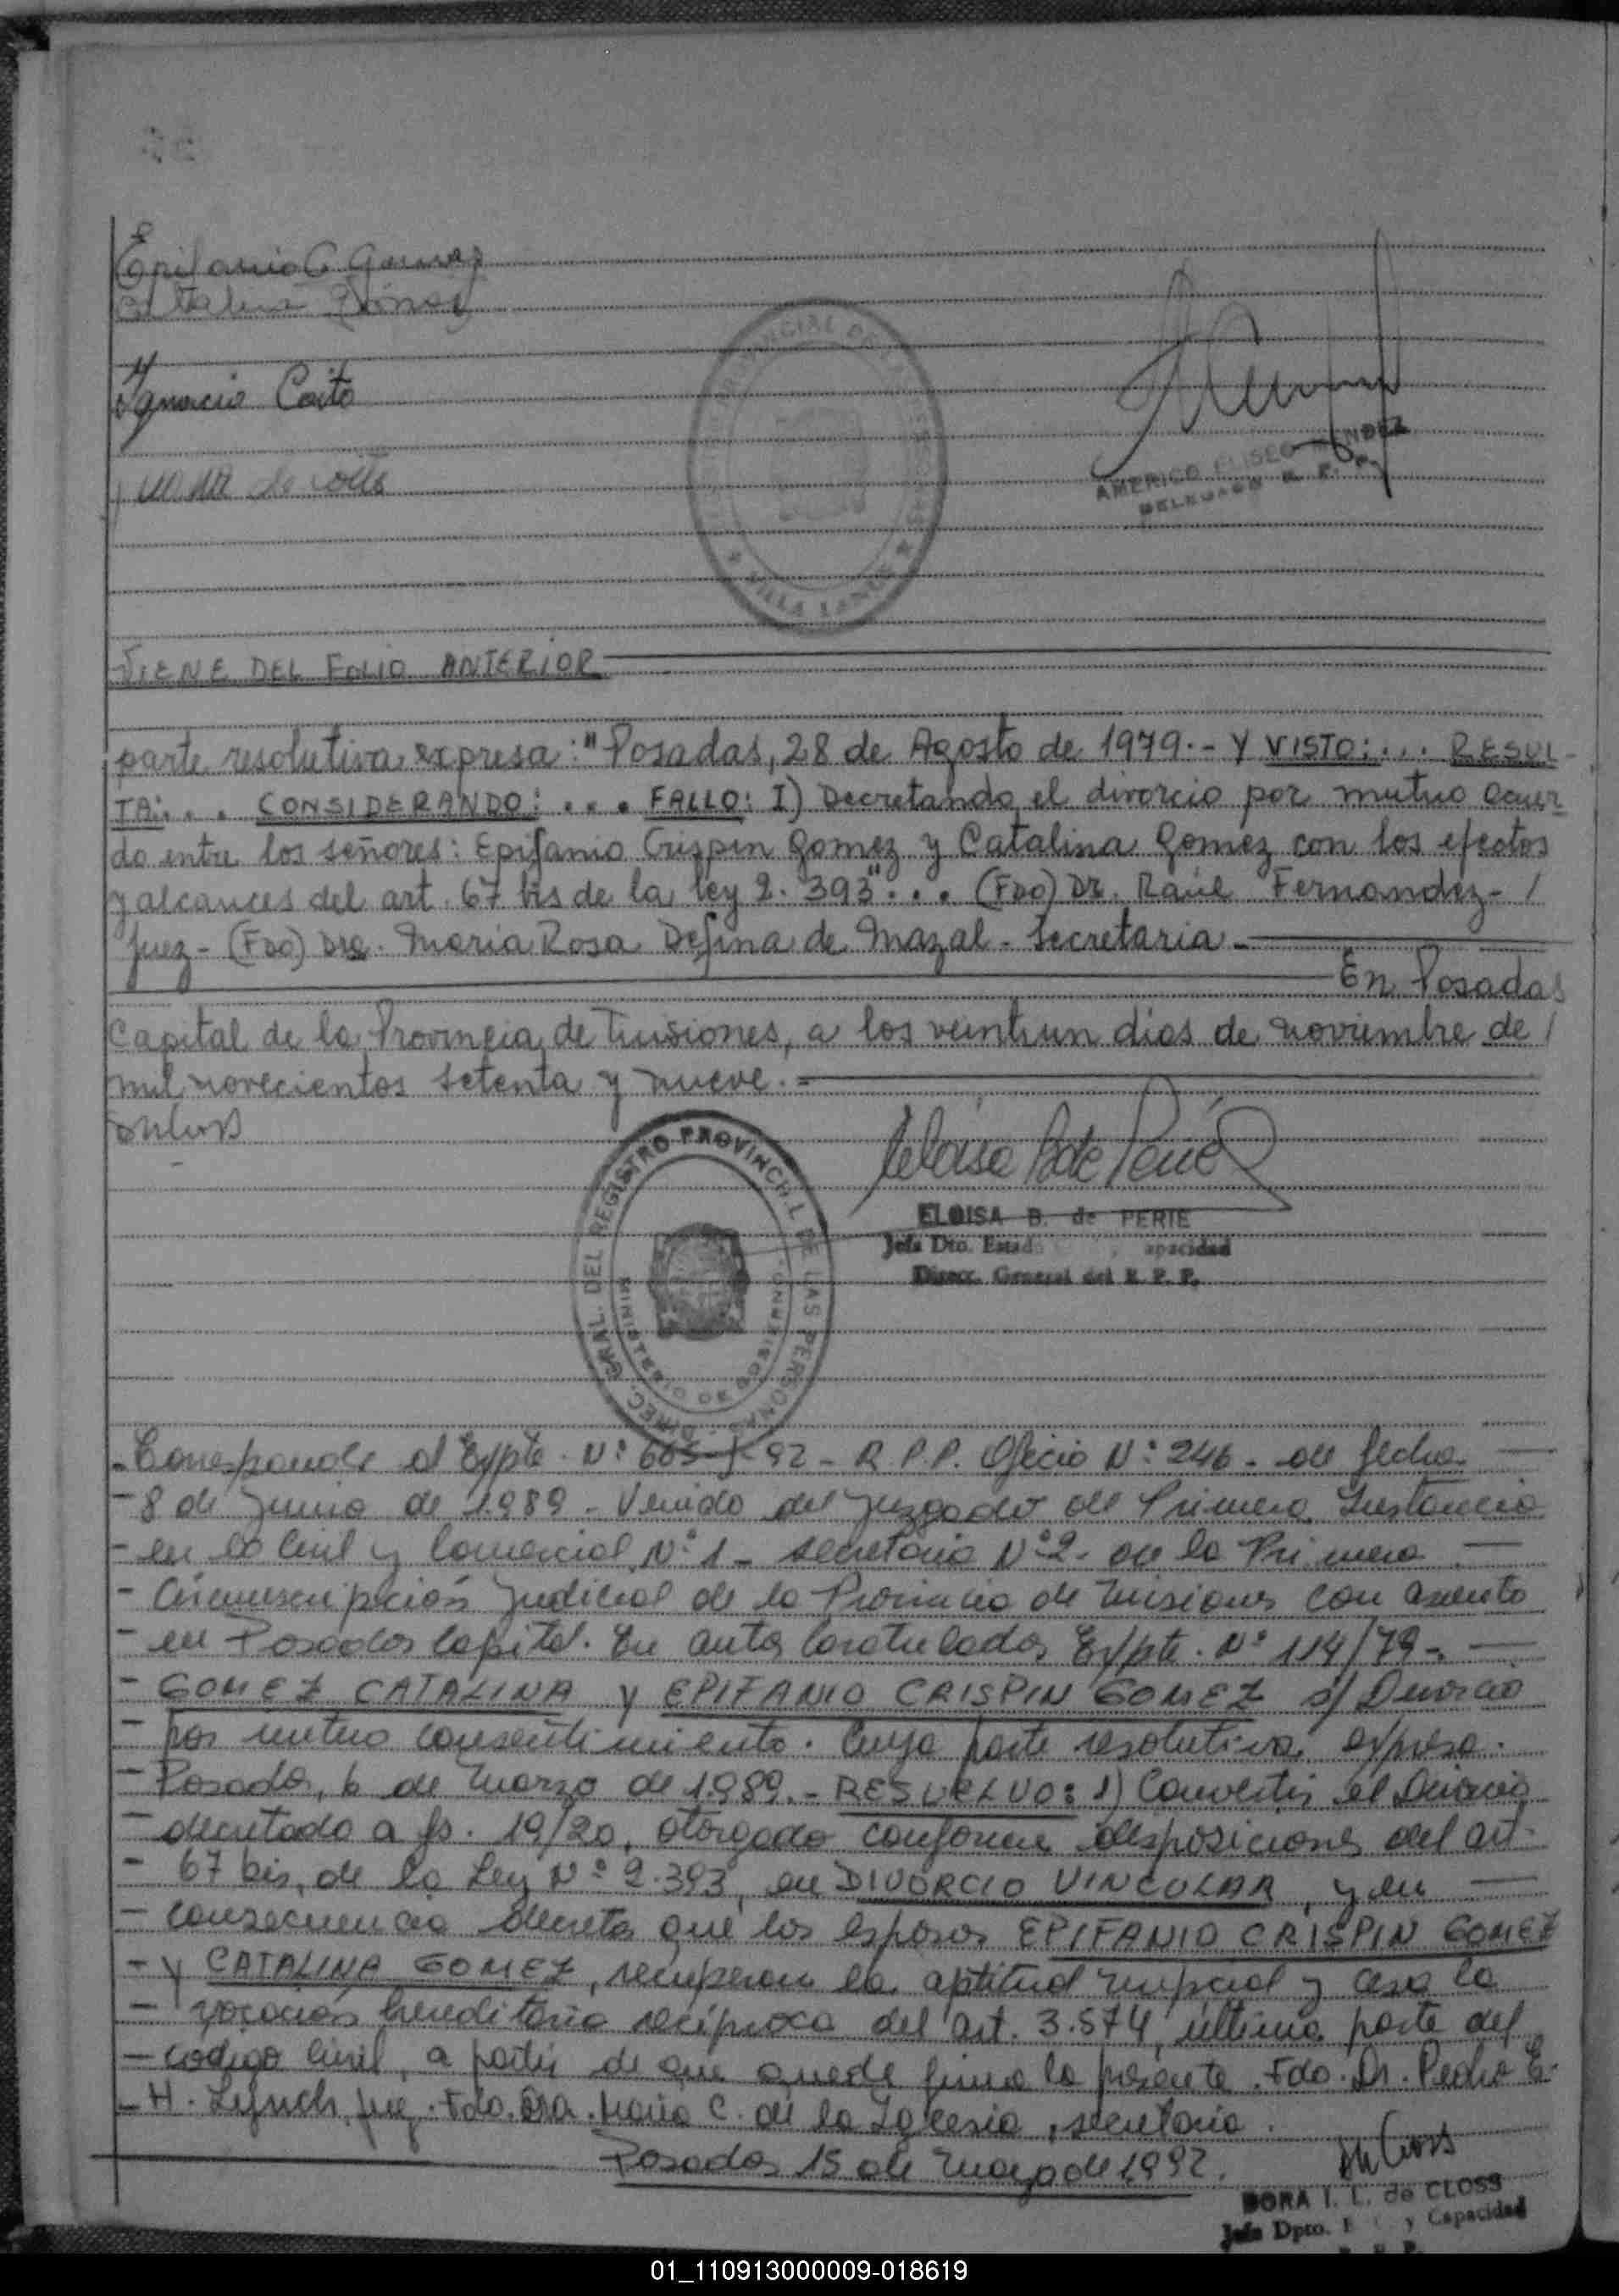 Epifanio C Gomez
Catalina Gómez
Ignacio Coito
de
AMERICO ELISEO MENDEZ
DELEGADO R. P. P.
PROVINCIAL DE LAS PERSONAS
VILLA
VIENE DEL FOLIO ANTERIOR
parte resolutiva expresa: "Posadas, 28 de Agosto de 1979.- Y VISTO:... RESUL-
TA:... CONSIDERANDO:.... FALLO: I) Decretando el divorcio por mutuo acuer
do entre los señores: Epifanio Crispin Gomez y Catalina Gomez con los efectos
y alcances del art. 67 bis de la ley 2.393"... (FDO) Dr. Raúl Fernandez- /
Juez- (FDO) Dra. Maria Rosa Defina de Mazal- Secretaria.-
En Posadas
Capital de la Provincia de Misiones, a los veintiun dias de noviembre de /
mil novecientos setenta y nueve.-
Eloisa B de Perié
ELOISA B. de PERIE
Jefa Dto. Estado apacidad
Direcc. General del R. P. P.
DIREC. GRAL. DEL REGISTRO PROVINCIAL DE LAS PERSONAS
MINISTERIO DE GOBIERNO
-Corresponde al Expte. N° 665-J-92- R.P.P. Oficio N° 246- de fecha
-8 de Junio de 1.989- Venido del Juzgado de Primera Instancia
-en lo Civil y Comercial N° 1- secretaria N° 2- de la Primera
-Circunscripción Judicial de la Provincia de Misiones con asiento
-en Posadas Capital. En autos Caratulados Expte. N° 114/79-
-GOMEZ CATALINA y EPIFANIO CRISPIN GOMEZ s/ Divorcio
-por mutuo consentimiento. Cuya parte resolutiva expresa.
-Posadas, 6 de Marzo de 1.989.- RESUELVO: 1) Convertir el Divorcio
-decretado a fs. 19/20, otorgado conforme disposiciones del art.
-67 bis, de la Ley N° 2.393, en DIVORCIO VINCULAR, y en
-consecuencia decreta que los esposos EPIFANIO CRISPIN GOMEZ
-y CATALINA GOMEZ, recuperan la aptitud nupcial y cesa la
-vocación hereditaria recíproca del art. 3.574, última parte del
-código Civil, a partir de que quede firme la presente. Fdo. Dr. Pedro E.
-H. Lynch Juez. Fdo. Dra. Maria C. de la Iglesia, secretaria.
Posadas 15 de Mayo de 1.992.
DORA I. L. de CLOSS
Jefa Dpto. E y Capacidad
R. P. P.
01_110913000009-018619